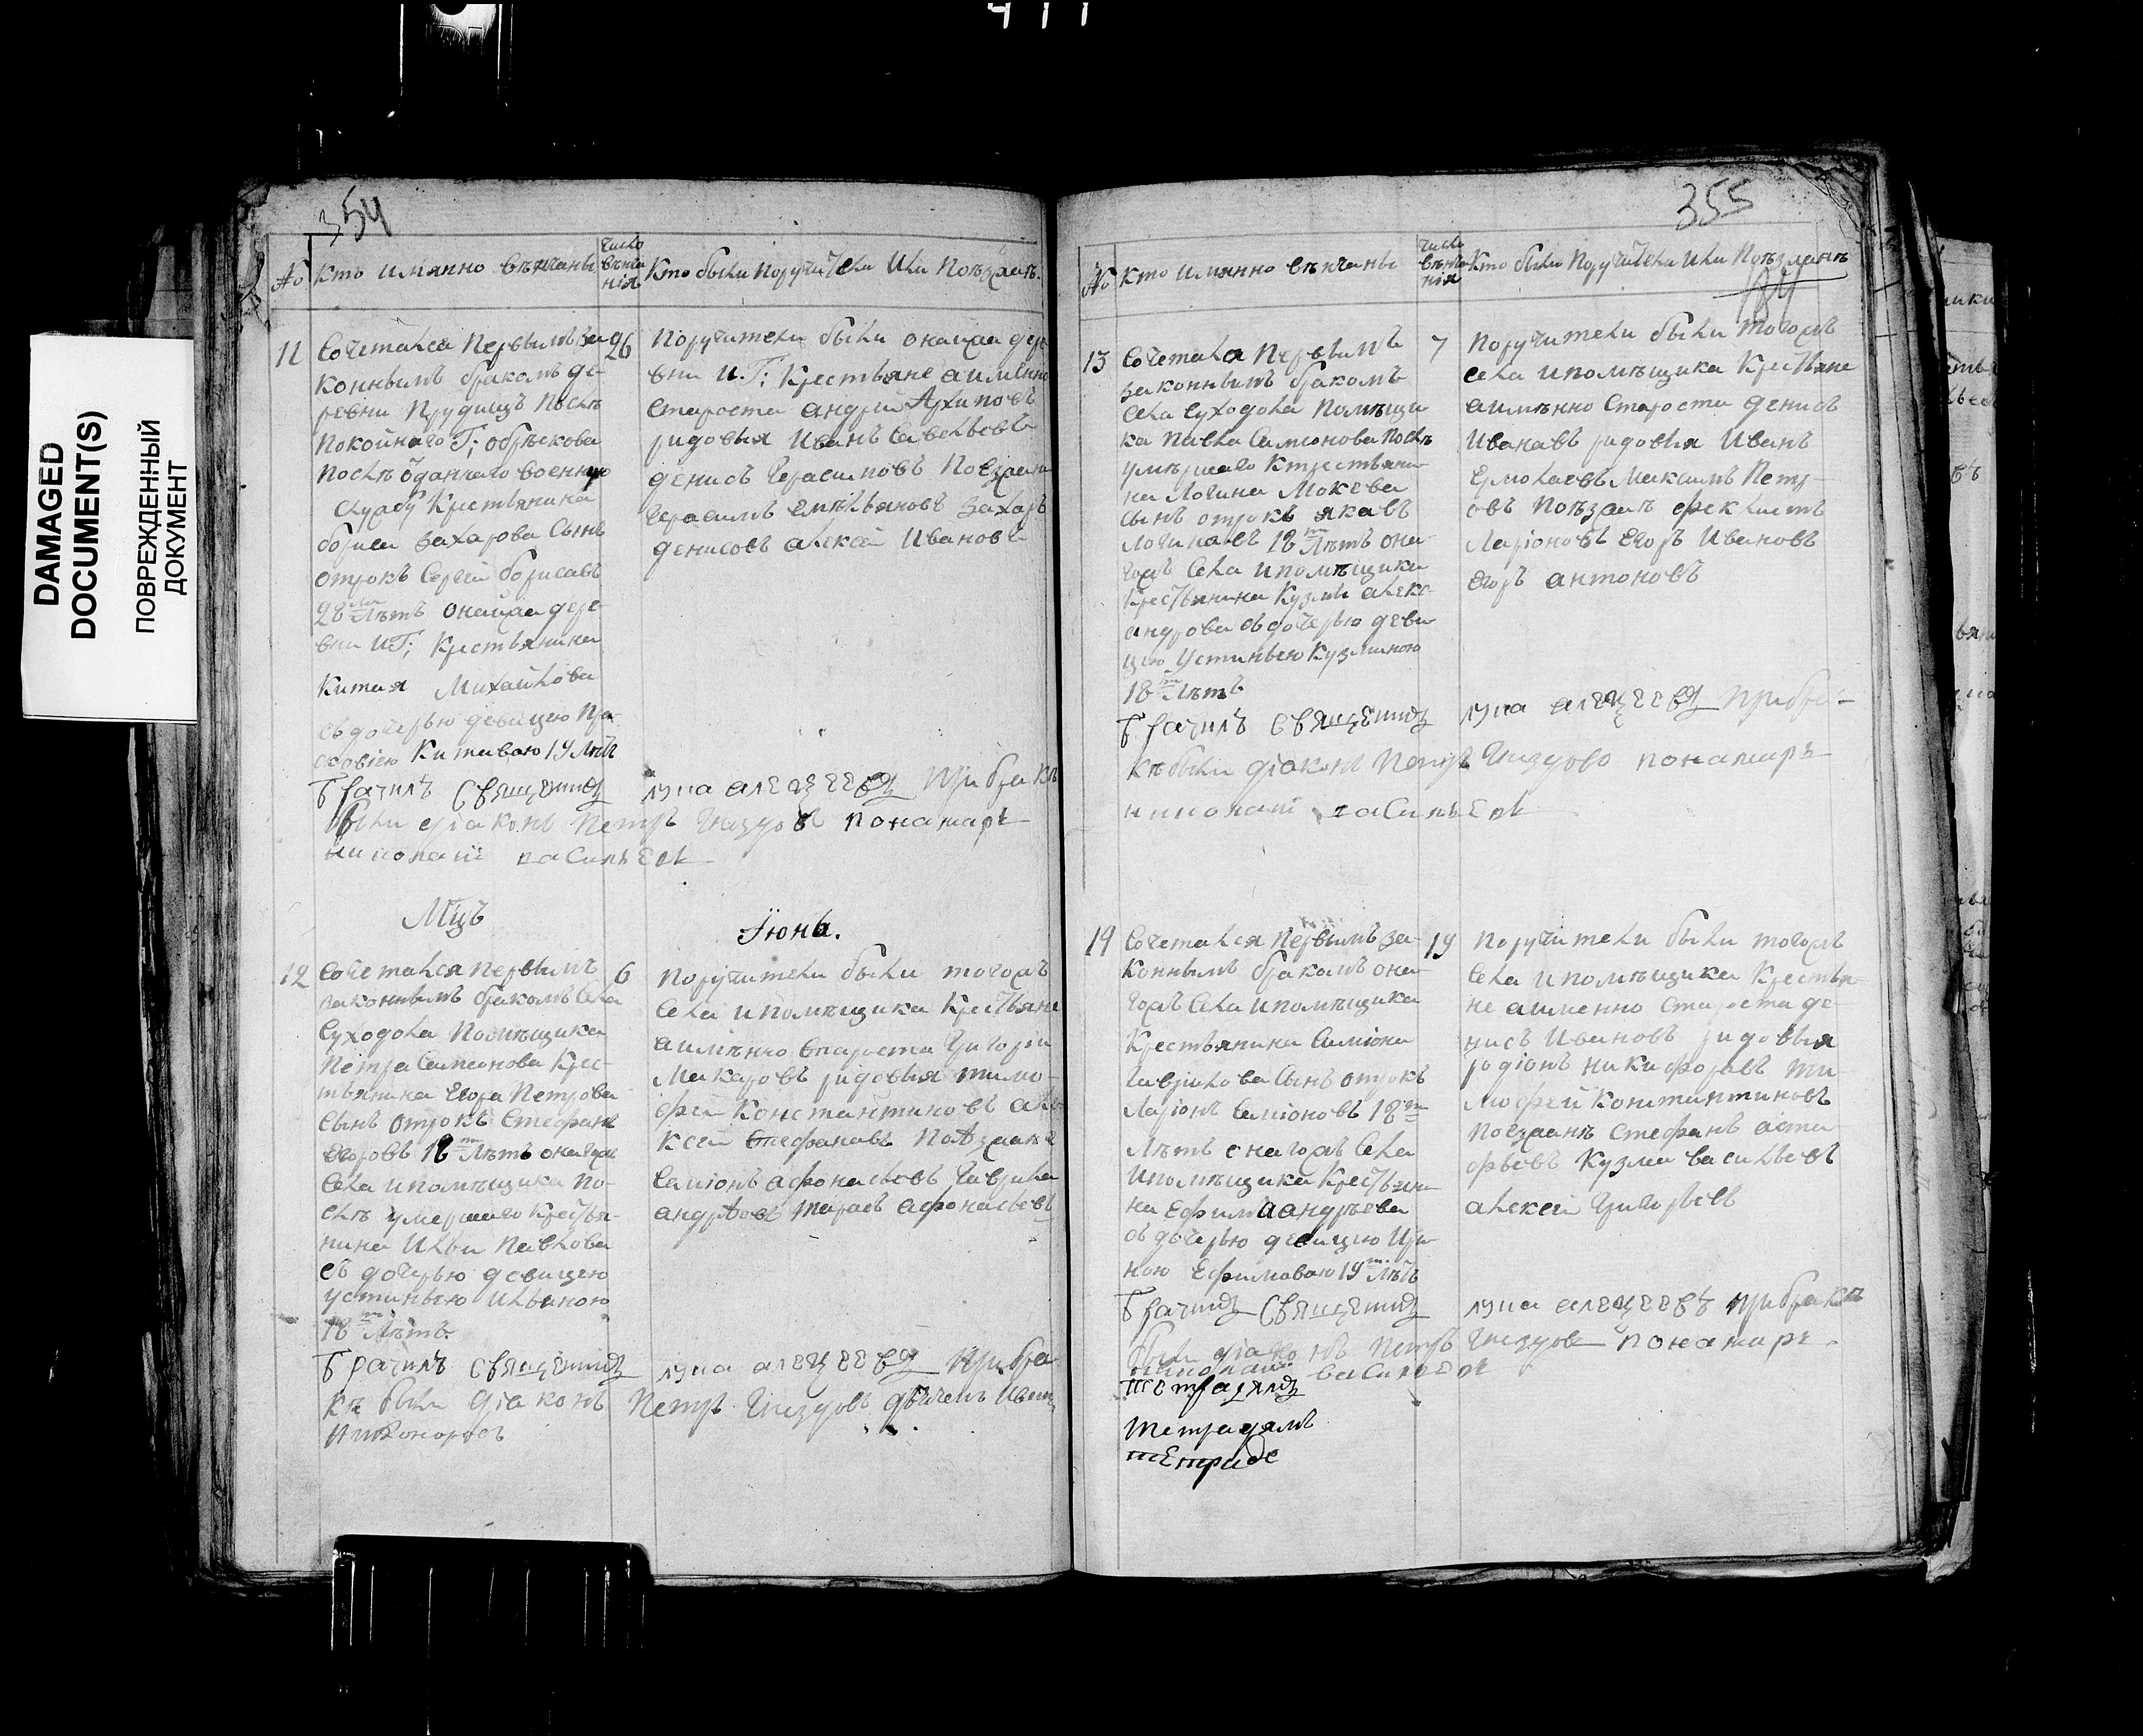 411
DAMAGED
DOCUMENT(S)
ПОВРЕЖДЕННЫЙ
ДОКУМЕНТ
354
№ Кто имянно вѣнчаны
число вѣнчанія
Кто были поручители или поѣзжанѣ.
11 Сочетался первымъ за 26
коннымъ бракомъ де-
ревни Прудищъ послѣ
покойнаго Г; обрѣскова
послѣ оданнаго военную
службу крестьянина
бориса захарова сынъ
отрокъ Сергей борисавъ
28ми лѣтъ онаижа дере-
вни и Г; крестьянина
Китая Михайлова
съ дочерью девицею Пра-
сковіею Китаваю 19 лѣтъ
Поручители были онаижа дере
вни и Г; крестьяне аимѣнно
староста андрей Архиповъ
ридовыя Иванъ Савельевъ
денисъ Герасимовъ поезжанѣ
Герасимъ Емѣльяновъ Захаръ
денисовъ алексей Ивановъ
Брачилъ священникъ лука алексеевъ при бракѣ
были діаконъ Петръ Гнездовъ понамарь
николаій васильевъ
Мцъ Іюнь.
12 Сочетался первымъ 6
законнымъ бракомъ села
Суходола помѣщика
Петра Самсонова крес-
тьянина Егора Петрова
сынъ отрокъ Стефанъ
Егоровъ 18ти лѣтъ онагожъ
села и помѣщика по-
слѣ умершаго крестья-
нина Ильи Павлова
съ дочерью девицею
устиньею Ильиною
18ти лѣтъ
Поручители были тогожъ
села и помѣщика крестьяне
аимѣнно староста Григорій
Макаровъ ридовыя тимо-
фей Константиновъ але
ксей Стефанавъ поезжанѣ
Саміонъ афонасьевъ Гаврила
андрѣевъ тарасъ афонасьевъ
Брачилъ священникъ лука алексеевъ при бра-
кѣ были діаконъ Петръ Гнездовъ дьячекъ Иванъ
Никоноровъ
355
№ Кто имянно вѣнчаны
число вѣнчанія
Кто были поручители или поѣзжанѣ
13 Сочетался первымъ 7
законнымъ бракомъ
села Суходола помѣщи
ка Павла Самсонова послѣ
умѣршаго крестьяни-
на Логина Мокеева
сынъ отрокъ якавъ
Логинавъ 18ти лѣтъ она-
гожъ села и помѣщика
крестьянина Кузмы алекса
андрова съ дочерью деви
цею Устиньею Кузминою
18ти лѣтъ
Поручители были тогожъ
села и помѣщика крестьяне
аимѣнно староста денисъ
Иванавъ ридовыя Иванъ
Ермолаевъ Максимъ Петр-
овъ поѣзжанѣ феклистъ
Ларіоновъ Егоръ Ивановъ
Егоръ антоновъ
Брачилъ священникъ лука алексеевъ при бра-
кѣ были діаконъ Петръ Гнездовъ понамарь
николаій васильевъ
14 Сочетался первымъ за- 19
коннымъ бракомъ она-
гожъ села и помѣщика
крестьянина Саміона
Гаврилова сынъ отрокъ
Ларіонъ Саміоновъ 18ти
лѣтъ онагожъ села
и помѣщика крестьяни-
на Ефима андрѣева
съ дочерью девицею Ири-
ною Ефимаваю 19ти лѣтъ
Поручители были тогожъ
села и помѣщика крестья-
не аименно староста де-
нисъ Ивановъ ридовыя
родіонъ никифоравъ ти-
мофей Констинтиновъ
поезжанѣ Стефанъ аста-
фьевъ Кузма васильевъ
алексей Григорьевъ
Брачилъ священникъ лука алексеевъ при бракѣ
были діаконъ Петръ Гнездовъ понамарь
николаій васильевъ
тетрадямъ